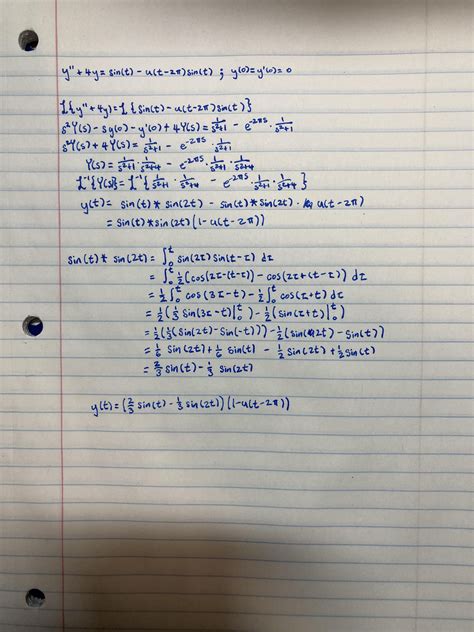 y'' + 4y = sin(t) - u(t-2π)sin(t) ; y(0)=y'(0)=0
L{y''+4y}=L{sin(t)-u(t-2π)sin(t)}
s²Y(s) - sy(0) - y'(0) + 4Y(s) = 1/(s²+1) - e^(-2πs) · 1/(s²+1)
s²Y(s) + 4Y(s) = 1/(s²+1) - e^(-2πs) · 1/(s²+1)
Y(s) = 1/(s²+1) · 1/(s²+4) - e^(-2πs) · 1/(s²+1) · 1/(s²+4)
L⁻¹{Y(s)} = L⁻¹{1/(s²+1) · 1/(s²+4) - e^(-2πs) · 1/(s²+1) · 1/(s²+4)}
y(t) = sin(t) * sin(2t) - sin(t) * sin(2t) · u(t-2π)
= sin(t) * sin(2t) (1-u(t-2π))
sin(t) * sin(2t) = ∫₀ᵗ sin(2τ) sin(t-τ) dτ
= ∫₀ᵗ ½(cos(2τ-(t-τ)) - cos(2τ+(t-τ))) dτ
= ½∫₀ᵗ cos(3τ-t) - ½∫₀ᵗ cos(τ+t) dτ
= ½(⅓ sin(3τ-t)|₀ᵗ) - ½(sin(τ+t)|₀ᵗ)
= ½(⅓(sin(2t)-sin(-t))) - ½(sin(2t)-sin(t))
= ⅙ sin(2t) + ⅙ sin(t) - ½ sin(2t) + ½ sin(t)
= ⅔ sin(t) - ⅓ sin(2t)
y(t) = (⅔ sin(t) - ⅓ sin(2t)) (1-u(t-2π))